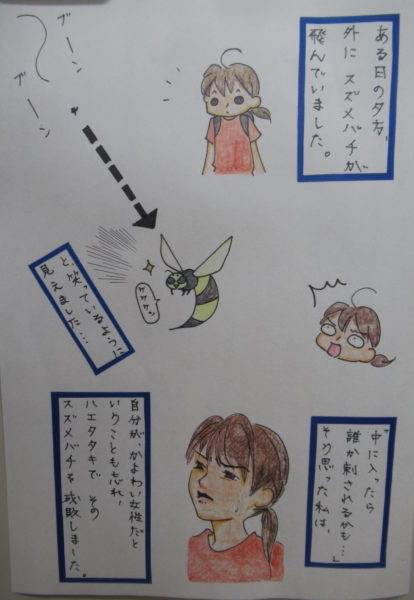 ある日の夕方、
外に スズメバチが
飛んでいました。
ブーン
ブーン
ケケケケッ
と、笑っているように
見えました…
「中に入ったら
誰か刺されるかも…」
そう思った私は、
自分が、かよわい女性だと
いうことも忘れ、
ハエタタキで その
スズメバチを 成敗しました。